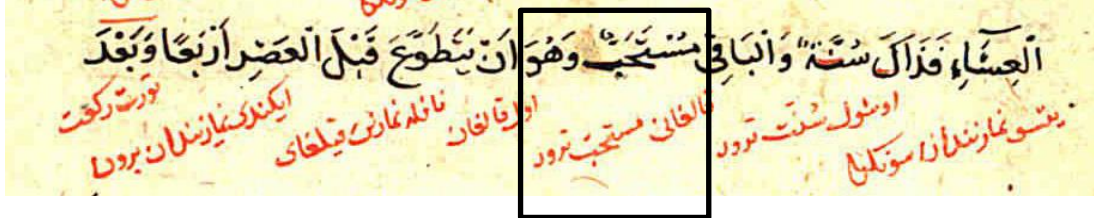 العِشَاءِ فَذَاكَ سُنَّةٌ وَالبَاقِي مُسْتَحَبٌّ وَهُوَ اَنْ يَتَطَوَّعَ قَبْلَ العَصْرِ اَرْبَعًا وَبَعْدَ
يتسو نمازيندان سونكلا اوشول سنت ترور قالغانى مستحب ترور اول قالغان نافله نمازنى قيلغاى ايكندى نمازيندان برون تورت ركعت